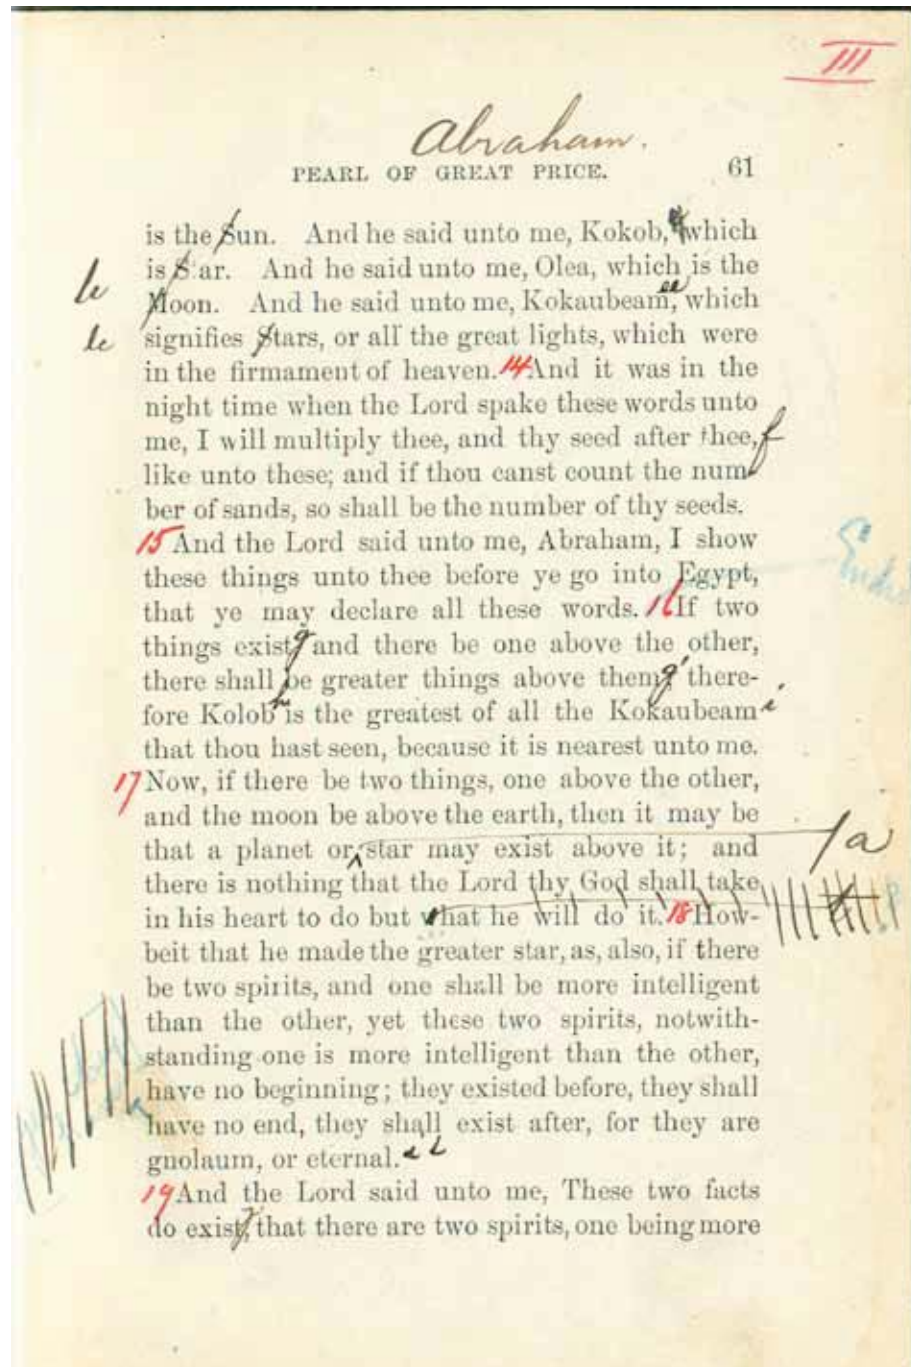 III
Abraham.
PEARL OF GREAT PRICE. 61
is the Sun. And he said unto me, Kokob, which
is S ar. And he said unto me, Olea, which is the
lc Moon. And he said unto me, Kokaubeam, which
lc signifies Stars, or all the great lights, which were
in the firmament of heaven. 14 And it was in the
night time when the Lord spake these words unto
me, I will multiply thee, and thy seed after thee,
like unto these; and if thou canst count the num
ber of sands, so shall be the number of thy seeds.
15 And the Lord said unto me, Abraham, I show
these things unto thee before ye go into Egypt,
that ye may declare all these words. 16 If two
things exist, and there be one above the other,
there shall be greater things above them, there-
fore Kolob is the greatest of all the Kokaubeam
that thou hast seen, because it is nearest unto me.
17 Now, if there be two things, one above the other,
and the moon be above the earth, then it may be
that a planet or star may exist above it; and a
there is nothing that the Lord thy God shall take
in his heart to do but what he will do it. 18 How-
beit that he made the greater star, as, also, if there
be two spirits, and one shall be more intelligent
than the other, yet these two spirits, notwith-
standing one is more intelligent than the other,
have no beginning; they existed before, they shall
have no end, they shall exist after, for they are
gnolaum, or eternal.
19 And the Lord said unto me, These two facts
do exist, that there are two spirits, one being more